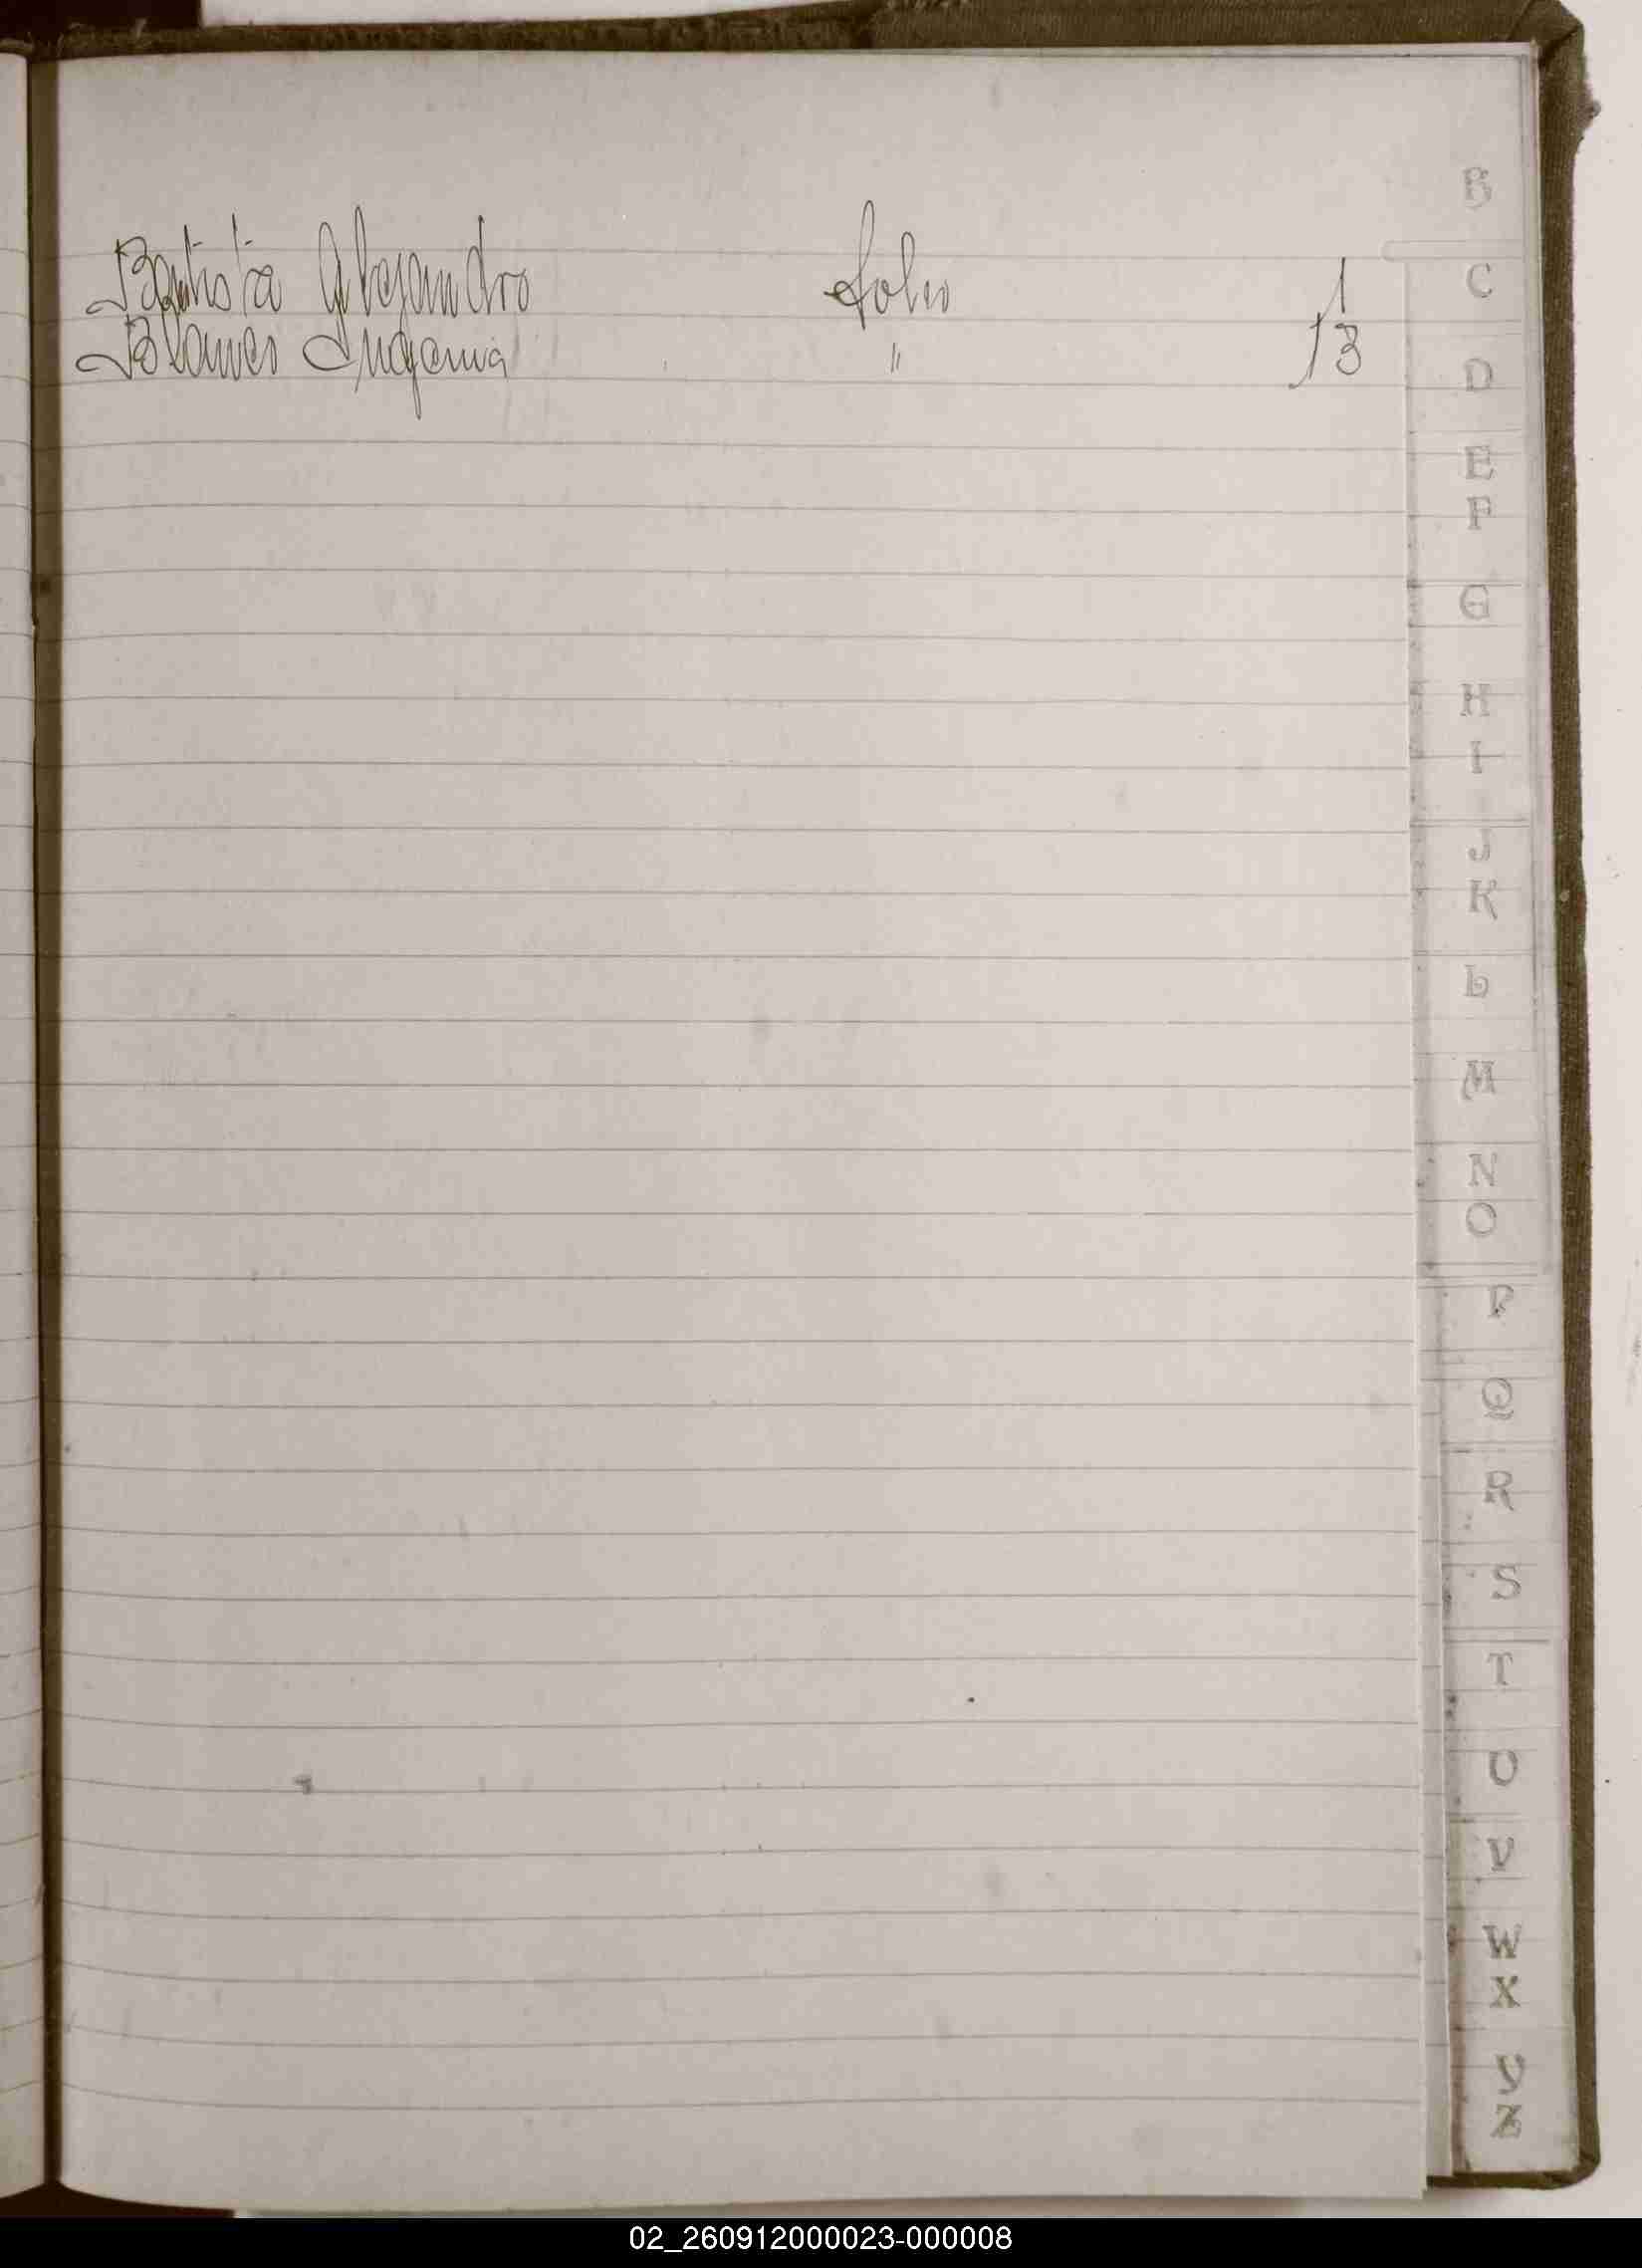 Bautista Alejandro folio 1
Blanes Eugenia " 13
B
C
D
E
F
G
H
I
J
K
L
M
N
O
P
Q
R
S
T
U
V
W
X
Y
Z
02_260912000023-000008